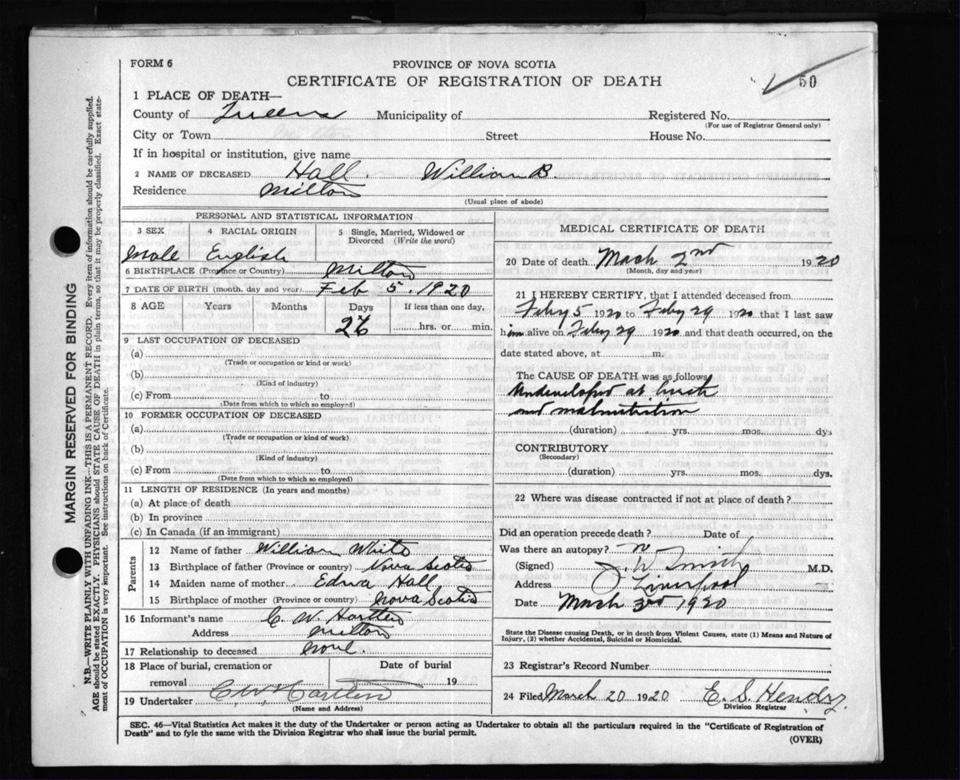 FORM 6
PROVINCE OF NOVA SCOTIA
CERTIFICATE OF REGISTRATION OF DEATH
50
1 PLACE OF DEATH—
County of Queens Municipality of Registered No.
(For use of Registrar General only)
City or Town Street House No.
If in hospital or institution, give name
2 NAME OF DECEASED Hall. William B.
Residence Milton
(Usual place of abode)
PERSONAL AND STATISTICAL INFORMATION
3 SEX 4 RACIAL ORIGIN 5 Single, Married, Widowed or Divorced (Write the word)
Male English
6 BIRTHPLACE (Province or Country) Milton
7 DATE OF BIRTH (month, day and year) Feb 5. 1920
8 AGE Years Months Days If less than one day,
26 hrs. or min.
9 LAST OCCUPATION OF DECEASED
(a)
(Trade or occupation or kind or work)
(b)
(Kind of industry)
(c) From to
(Date from which to which so employed)
10 FORMER OCCUPATION OF DECEASED
(a)
(Trade or occupation or kind of work)
(b)
(Kind of industry)
(c) From to
(Date from which to which so employed)
11 LENGTH OF RESIDENCE (In years and months)
(a) At place of death
(b) In province
(c) In Canada (if an immigrant)
Parents
12 Name of father William White
13 Birthplace of father (Province or country) Nova Scotia
14 Maiden name of mother Edna Hall
15 Birthplace of mother (Province or country) Nova Scotia
16 Informant's name C. W. Hartlen
Address Milton
17 Relationship to deceased None.
18 Place of burial, cremation or Date of burial
removal 19
19 Undertaker C W Hartlen
(Name and Address)
MEDICAL CERTIFICATE OF DEATH
20 Date of death Mach 2nd 1920
(Month, day and year)
21 I HEREBY CERTIFY, that I attended deceased from
Feby 5 1920 to Feby 29 1920 that I last saw
him alive on Feby 29 1920 and that death occurred, on the
date stated above, at m.
The CAUSE OF DEATH was as follows
Undeveloped at birth
and malnutrition
(duration) yrs. mos. dys
CONTRIBUTORY
(Secondary)
(duration) yrs. mos. dys.
22 Where was disease contracted if not at place of death?
Did an operation precede death? Date of
Was there an autopsy? n
(Signed) J. W Smith M.D.
Address Liverpool
Date Mach 3rd 1920
State the Disease causing Death, or in death from Violent Causes, state (1) Means and Nature of
Injury, (2) whether Accidental, Suicidal or Homicidal.
23 Registrar's Record Number
24 Filed March 20 1920 E. S. Hendry.
Division Registrar
SEC. 46—Vital Statistics Act makes it the duty of the Undertaker or person acting as Undertaker to obtain all the particulars required in the "Certificate of Registration of
Death" and to fyle the same with the Division Registrar who shall issue the burial permit.
(OVER)
MARGIN RESERVED FOR BINDING
N.B.—WRITE PLAINLY WITH UNFADING INK—THIS IS A PERMANENT RECORD. Every item of information should be carefully supplied.
AGE should be stated EXACTLY. PHYSICIANS should STATE CAUSE OF DEATH in plain terms, so that it may be properly classified. Exact state-
ment of OCCUPATION is very important. See instructions on back of Certificate.